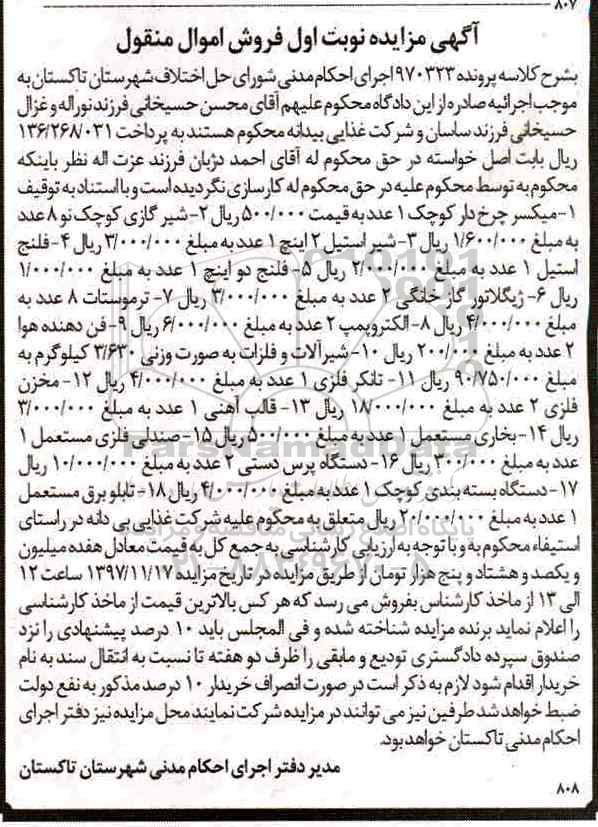 ۸۰۷
آگهی مزایده نوبت اول فروش اموال منقول
بشرح کلاسه پرونده ۹۷۰۳۲۳ اجرای احکام مدنی شورای حل اختلاف شهرستان تاکستان به
موجب اجرائیه صادره از این دادگاه محکوم علیهم آقای محسن حسیخانی فرزند نوراله و غزال
حسیخانی فرزند ساسان و شرکت غذایی بیدانه محکوم هستند به پرداخت ۱۳۶/۲۶۸/۰۳۱
ریال بابت اصل خواسته در حق محکوم له آقای احمد دژبان فرزند عزت اله نظر باینکه
محکوم به توسط محکوم علیه در حق محکوم له کارسازی نگردیده است و با استناد به توقیف
۱-میکسر چرخ دار کوچک ۱ عدد به قیمت ۵۰۰/۰۰۰ ریال ۲-شیر گازی کوچک نو ۸ عدد
به مبلغ ۱/۶۰۰/۰۰۰ ریال ۳-شیر استیل ۲ اینچ ۱ عدد به مبلغ ۳/۰۰۰/۰۰۰ ریال ۴-فلنج
استیل ۱ عدد به مبلغ ۲/۰۰۰/۰۰۰ ریال ۵- فلنج دو اینچ ۱ عدد به مبلغ ۱/۰۰۰/۰۰۰
ریال ۶- ژیگلاتور گاز خانگی ۲ عدد به مبلغ ۳/۰۰۰/۰۰۰ ریال ۷- ترموستات ۸ عدد به
مبلغ ۴/۰۰۰/۰۰۰ ریال ۸-الکتروپمپ ۲ عدد به مبلغ ۶/۰۰۰/۰۰۰ ریال ۹-فن دهنده هوا
۲ عدد به مبلغ ۲۰۰/۰۰۰ ریال ۱۰-شیرآلات و فلزات به صورت وزنی ۳/۶۳۰ کیلوگرم به
مبلغ ۹۰/۷۵۰/۰۰۰ ریال ۱۱- تانکر فلزی ۱ عدد به مبلغ ۴/۰۰۰/۰۰۰ ریال ۱۲-مخزن
فلزی ۲ عدد به مبلغ ۱۸/۰۰۰/۰۰۰ ریال ۱۳- قالب آهنی ۱ عدد به مبلغ ۳/۰۰۰/۰۰۰
ریال ۱۴-بخاری مستعمل ۱ عدد به مبلغ ۵۰۰/۰۰۰ ریال ۱۵-صندلی فلزی مستعمل ۱
عدد به مبلغ ۳۰۰/۰۰۰ ریال ۱۶-دستگاه پرس دستی ۲ عدد به مبلغ ۱۰/۰۰۰/۰۰۰ ریال
۱۷-دستگاه بسته بندی کوچک ۱ عدد به مبلغ ۴/۰۰۰/۰۰۰ ریال ۱۸-تابلو برق مستعمل
۱ عدد به مبلغ ۲۰/۰۰۰/۰۰۰ ریال متعلق به محکوم علیه شرکت غذایی بی دانه در راستای
استیفاء محکوم به و با توجه به ارزیابی کارشناسی به جمع کل به قیمت معادل هفده میلیون
و یکصد و هشتاد و پنج هزار تومان از طریق مزایده در تاریخ مزایده ۱۳۹۷/۱۱/۱۷ ساعت ۱۲
الی ۱۳ از ماخذ کارشناس بفروش می رسد که هر کس بالاترین قیمت از ماخذ کارشناسی
را اعلام نماید برنده مزایده شناخته شده و فی المجلس باید ۱۰ درصد پیشنهادی را نزد
صندوق سپرده دادگستری تودیع و مابقی را ظرف دو هفته تا نسبت به انتقال سند به نام
خریدار اقدام شود لازم به ذکر است در صورت انصراف خریدار ۱۰ درصد مذکور به نفع دولت
ضبط خواهد شد طرفین نیز می توانند در مزایده شرکت نمایند محل مزایده نیز دفتر اجرای
احکام مدنی تاکستان خواهد بود.
مدیر دفتر اجرای احکام مدنی شهرستان تاکستان
۸۰۸
ParsNamadData